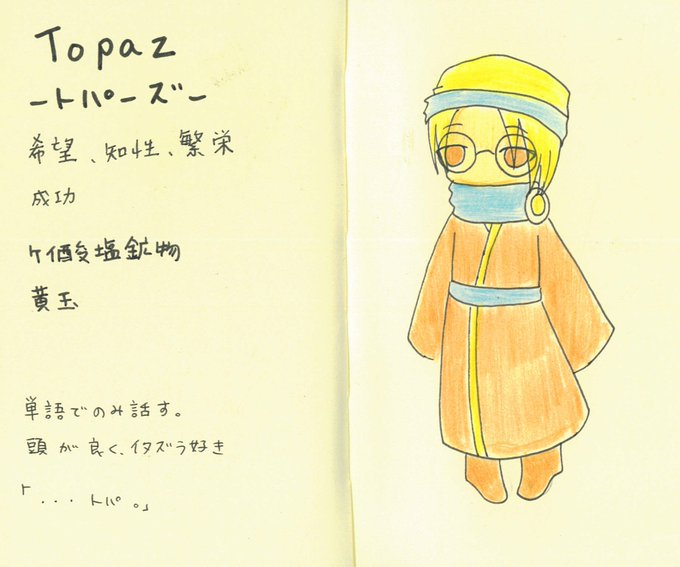 Topaz
ートパーズー
希望、知性、繁栄
成功
ケイ酸塩鉱物
黄玉
単語でのみ話す。
頭が良く、イタズラ好き
「...トパ。」